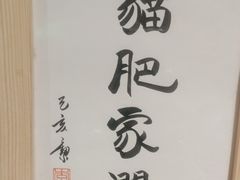 貓肥家潤
己亥